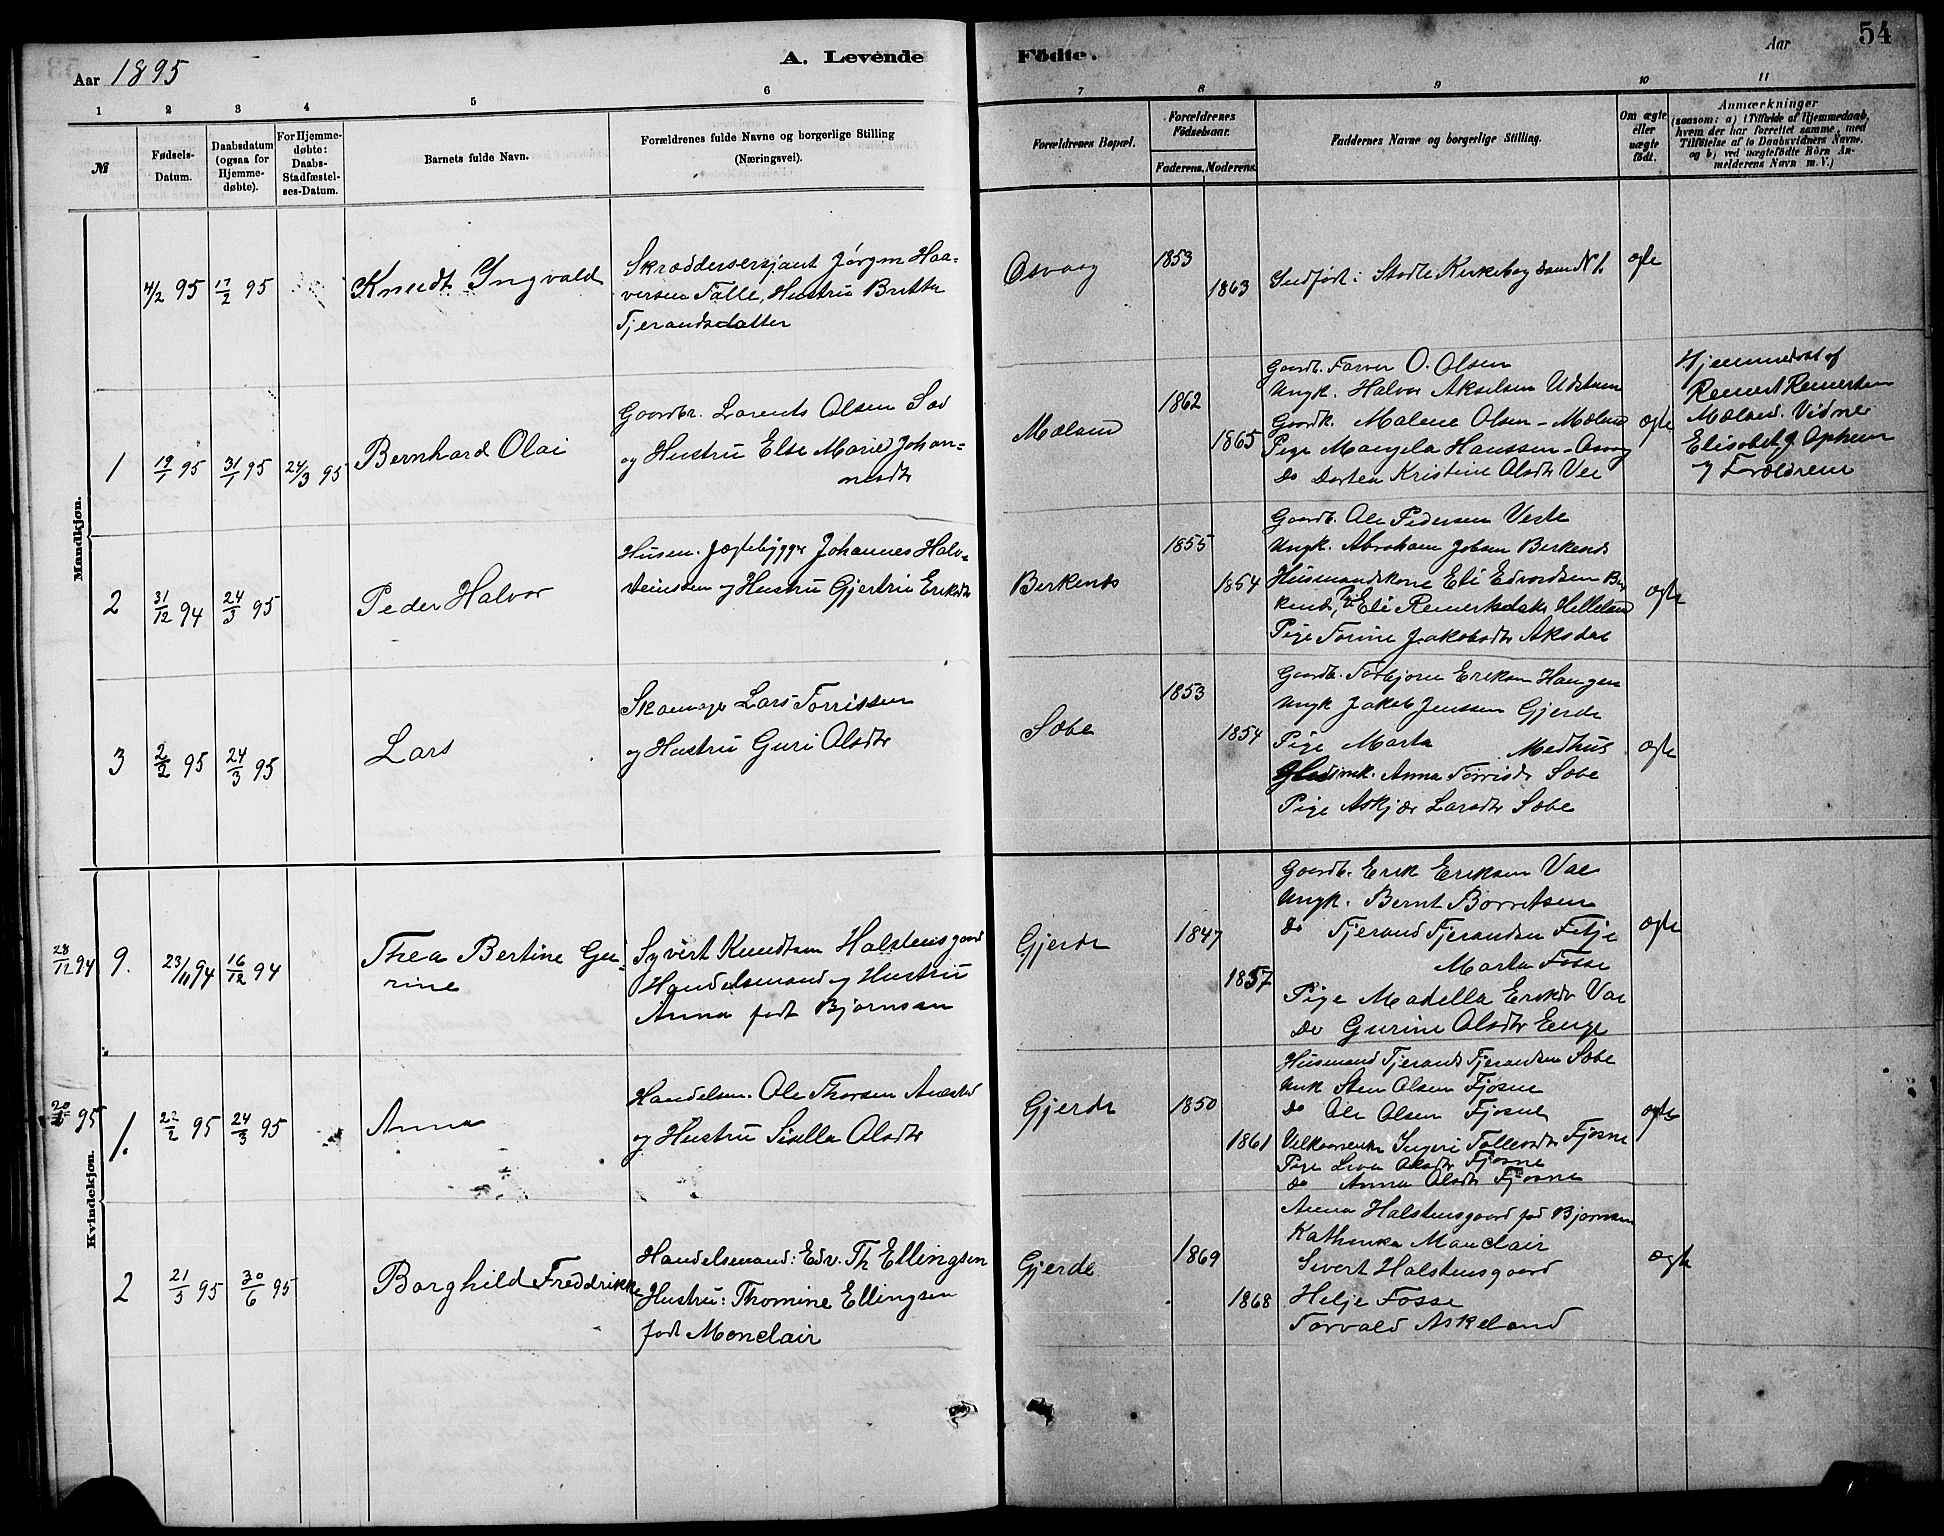 Aar 1895
A. Levende
Fødte.
Aar
54
1
2
3
4
5
6
7
8
9
10
11
№
Fødsels-
Datum.
Daabsdatum
(ogsaa for
Hjemme-
døbte).
For Hjemme-
døbte:
Daabs-
Stadfæstel-
ses-Datum.
Barnets fulde Navn.
Forældrenes fulde Navne og borgerlige Stilling
(Næringsvei).
Forældrenes Bopæl.
Forældrenes
Fødselsaar.
Faderens.
Moderens.
Faddernes Navne og borgerlige Stilling.
Om ægte
eller
uægte
født.
Anmærkninger
(saasom: a) i Tilfælde af Hjemmedaab,
hvem der har forrettet samme, med
Tilføielse af to Daabsvidners Navne,
og b) ved uægtefødte Børn An-
melderens Navn m. V.)
Mandkjøn.
4/2 95
17/2 95
Knudt Ingvald
Skræddersersjant Jørgen Haa-
versen Falle, Hustru Britta
Tjerandsdatter
Osvaag
1853
1863
Indført i Stodle Kirkebog som N 1.
ægte
1
19/1 95
31/1 95
24/3 95
Bernhard Olai
Gaardbr. Larents Olsen
og Hustru Else Marie Johan-
nesdtr
Mæland
1862
1865
Gaardb. Farver O. Olsen
Ungk. Halvor Akselsen
Gaardk. Malene Olsen - Mæland
Pige Mangela Hanssen - Osvag
Do Dortea Kristine Olsdtr Vee
ægte
Hjemmedøbt af
Remert Remertsen
Mæland. Vidner
Elisabet J. Opheim
og Forældrene
2
31/12 94
24/3 95
Peder Halvor
Husm. Jægtebygger Johannes Halv-
steinssen og Hustru Gjertru Eriksdtr
Berkenes
1855
1854
Gaardb. Ole Pedersen Veste
Ungk. Abraham Jobsen Berkenes
Husmandskone Eli Edvardsen Ber-
kenes, Eli Remertsdatr Helleland
Pige Torine Jakobsdtr Aksdal
ægte
3
2/2 95
24/3 95
Lars
Skomager Lars Torrissen
og Hustru Guri Olsdtr
Sæbe
1853
1854
Gaardb. Torbjørn Eriksen Haugen
Ungk Jakob Jenssen Gjerde
Pige Marta Medhus
Anna Torrisdr Sæbe
Pige Askjær Larsdtr Sæbe
ægte
Kvindekjøn.
28/12 94
9.
23/11 94
16/12 94
Thea Bertine Gu-
rine
Syvert Knudtsen Halstensgaard
Handelsmand og Hustru
Anna født Bjørnsen
Gjerde
1847
1857
Gaardb. Erik Eriksen Vae
Ungk. Bernt Borretsen
Do Tjerand Tjerandsen Fitje
Marta Fosse
Pige Madella Eriksdr Vae
Do Gurine Olsdtr Enge
ægte
95
1.
22/2 95
24/3 95
Anna
Handelsm. Ole Thorsen
og Hustru Sisilla Olsdtr
Gjerde
1850
1861
Husmand Tjerand Tjerandsen Sæbe
Unk Sten Olsen Fjøsne
Do Ole Olsen Fjøsne
Ingeri Tollevsdtr Fjøsne
Pige Lisa Olsdtr Fjøsne
do Anna Olsdtr Fjøsne
ægte
2
21/5 95
30/6 95
Borghild Freddrikke
Handelsmand: Edv. Th Ellingsen
Hustru: Thomine Ellingsen
født Monclair
Gjerde
1869
1868
Anna Halstensgaard fød Bjørnsen
Kathinka Monclair
Sivert Halstensgaard
Helje Fosse
Torvald Askeland
ægte